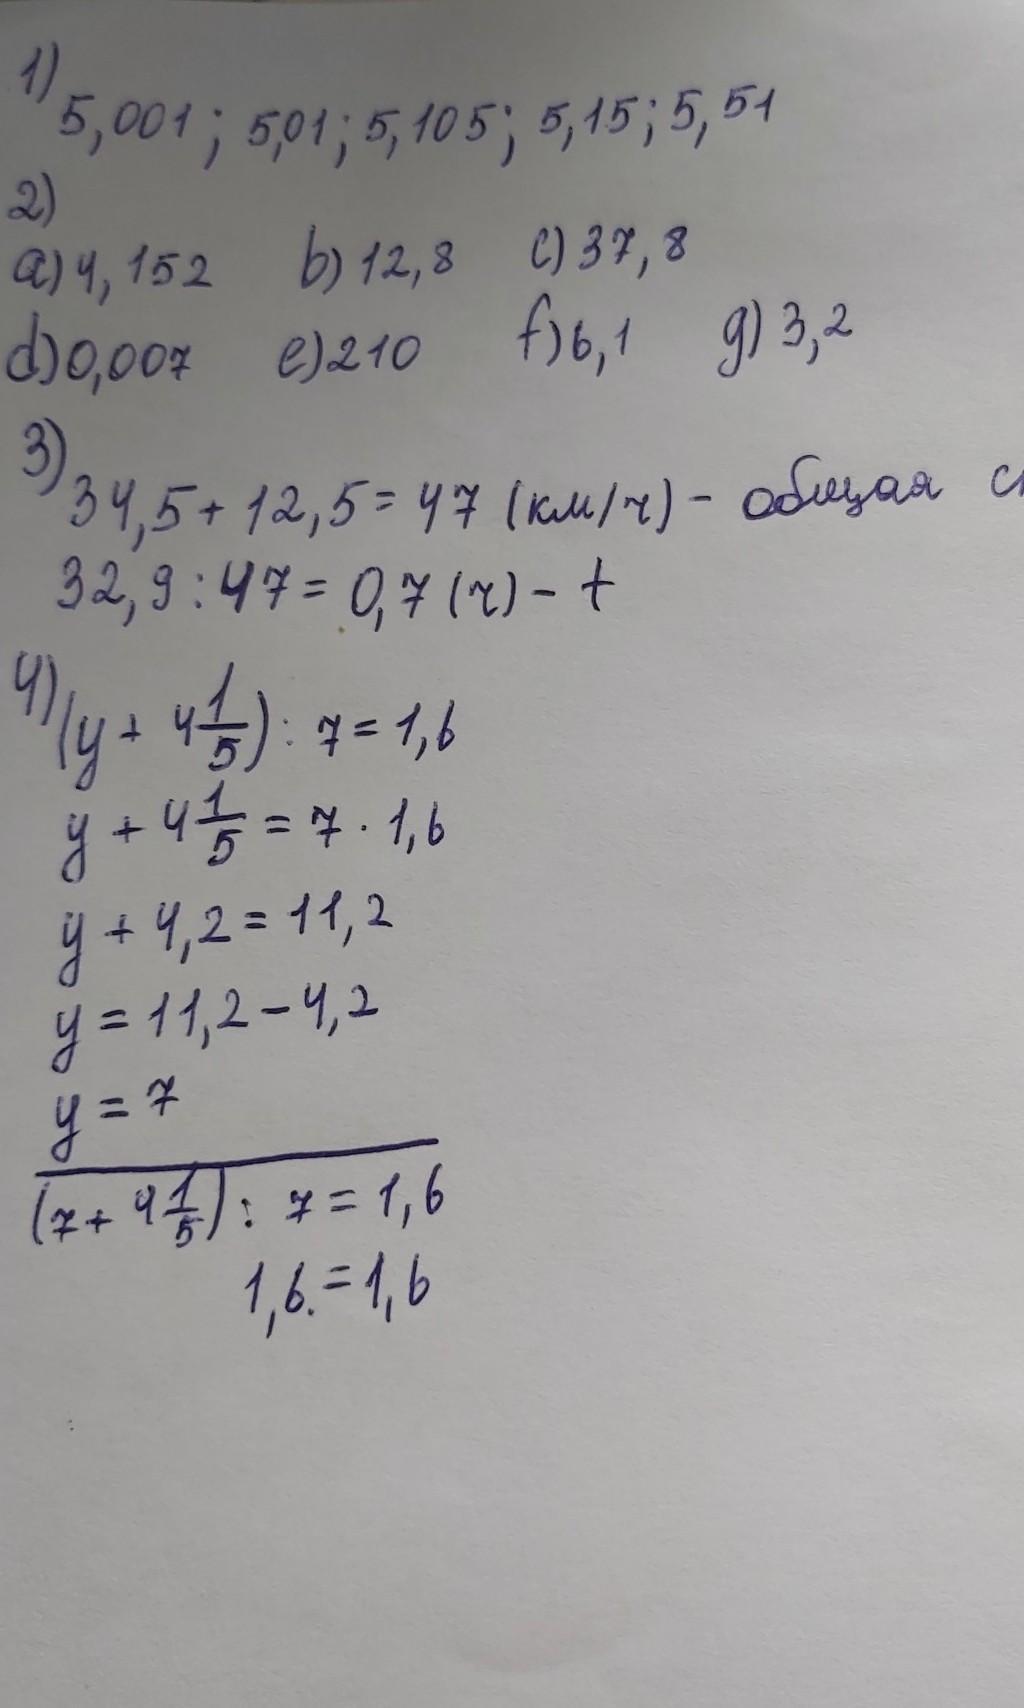 1)
5,001; 5,01; 5,105; 5,15; 5,51
2)
a) 4,152 b) 12,8 c) 37,8
d) 0,007 e) 210 f) 6,1 g) 3,2
3)
34,5 + 12,5 = 47 (км/ч) - общая
32,9 : 47 = 0,7 (ч) - t
4) (y + 4 1/5) : 7 = 1,6
y + 4 1/5 = 7 · 1,6
y + 4,2 = 11,2
y = 11,2 - 4,2
y = 7
(7 + 4 1/5) : 7 = 1,6
1,6 = 1,6